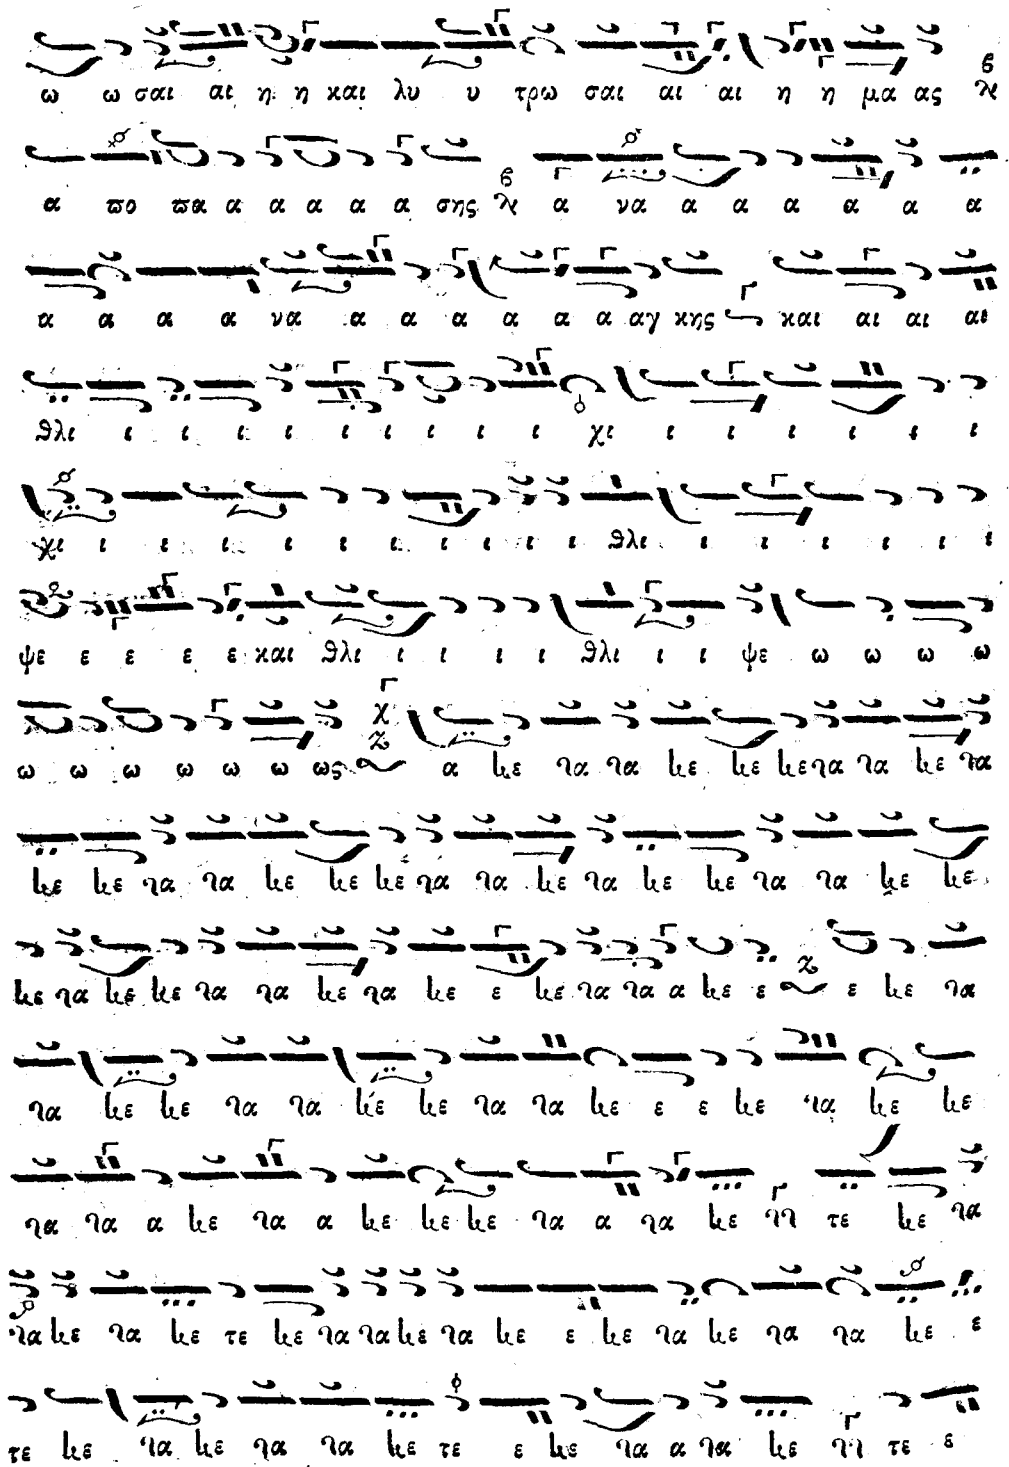 ω ω σαι αι η η και λυ υ τρω σαι αι αι η η μα ας
α πο πα α α α α α σης α να α α α α α α
α α α α να α α α α α α αγ κης και αι αι αι
θλι ι ι ι ι ι ι ι ι ι χι ι ι ι ι ι ι
χι ι ι ι ι ι ι ι ι ι ι θλι ι ι ι ι ι ι
ψε ε ε ε ε και θλι ι ι ι ι θλι ι ι ψε ω ω ω ω
ω ω ω ω ω ω ως α κε τα τα κε κε κε τα τα κε τα
κε κε τα τα κε κε κε τα τα κε τα κε κε τα τα κε κε
κε τα κε κε τα τα κε τα κε ε κε τα τα α κε ε ε κε τα
τα κε κε τα τα κε κε τα τα κε ε ε κε τα κε κε
τα τα α κε τα α κε κε κε τα α τα κε τε κε τα
τα κε τα κε τε κε τα τα κε τα κε ε κε τα κε τα τα κε ε
τε κε τα κε τα τα κε τε ε κε τα α τα κε τε ε